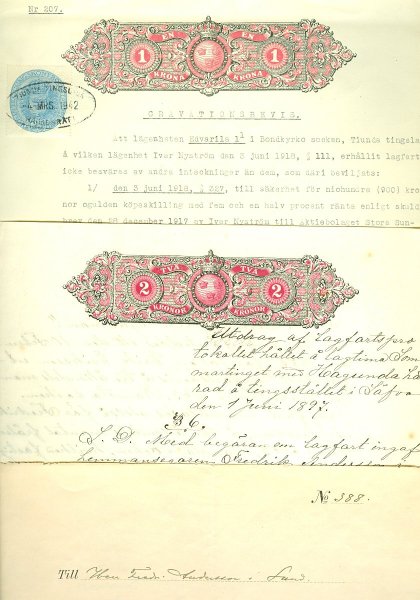 Nr 207.
EN EN
1 1
KRONA KRONA
TIUNDA TINGSLAG
-4 MRS. 1942
GRAVATIONSBEVIS.
Att lägenheten Kuverila 1¹ i Bondkyrko socken, Tiunda tingsla
å vilken lägenhet Iver Nyström den 3 juni 1918, § 111, erhållit lagfart
icke besväras av andra inteckningar än dem, som däri beviljats:
1/ den 3 juni 1918, § 327, till säkerhet för niohundra (900) kro
nor ogulden köpeskilling med fem och en halv procent ränta enligt skuld
brev den 28 december 1917 av Iver Nyström till Aktiebolaget Stora Sun-
TVÅ TVÅ
2 2
KRONOR KRONOR
Utdrag af Lagfartspro
tokollet hållet å lagtima Som
martinget med Hagunda Hä
rad å tingsstället i Säfva
den 1 Juni 1897.
§ 6.
S. D. Med begäran om lagfart ingaf
hemmansegaren Fredrik Andersson
No 388.
Till Herr Fredr. Andersson i Sund.